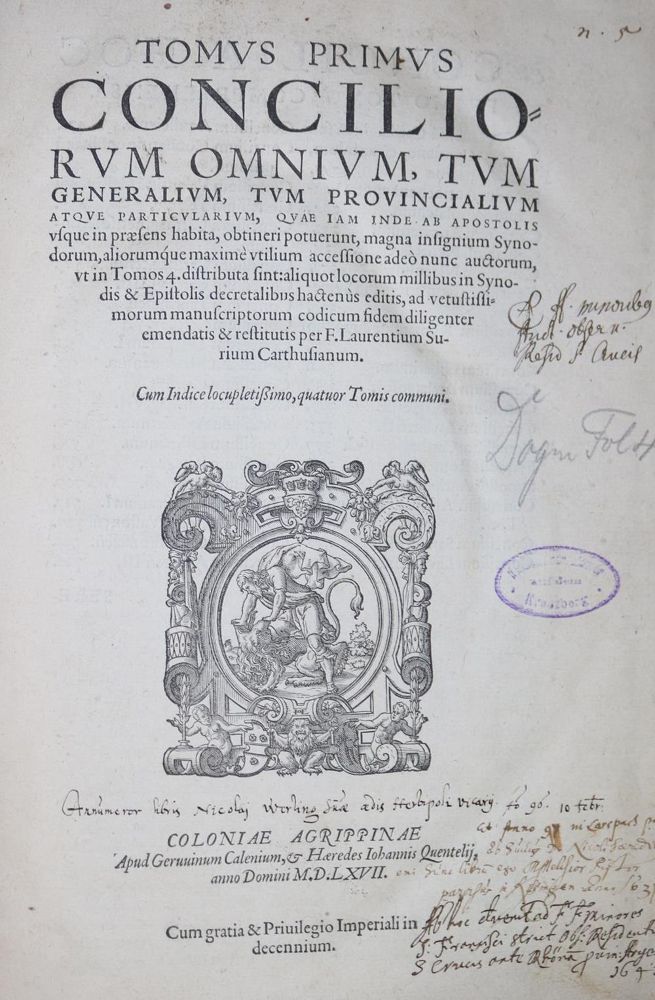 n. 5
TOMVS PRIMVS
CONCILIO=
RVM OMNIVM, TVM
GENERALIVM, TVM PROVINCIALIVM
ATQVE PARTICVLARIVM, QVAE IAM INDE AB APOSTOLIS
vsque in præsens habita, obtineri potuerunt, magna insignium Syno-
dorum, aliorumque maximè vtilium accessione adeò nunc auctorum,
vt in Tomos 4. distributa sint: aliquot locorum millibus in Syno-
dis & Epistolis decretalibus hactenùs editis, ad vetustissi=
morum manuscriptorum codicum fidem diligenter
emendatis & restitutis per F. Laurentium Su-
rium Carthusianum.
Cum Indice locupletißimo, quatuor Tomis communi.
Kreuzberg
libris Nicolaj Werling ædis Herbipoli vicarij. 10
COLONIAE AGRIPPINAE
Apud Geruuinum Calenium, & Hæredes Iohannis Quentelij,
anno Domini M.D.LXVII.
Cum gratia & Priuilegio Imperiali in
decennium.
Ad hoc F. F. Minores
S. Francisci strict. Obs. Resident
S. Crucis ante